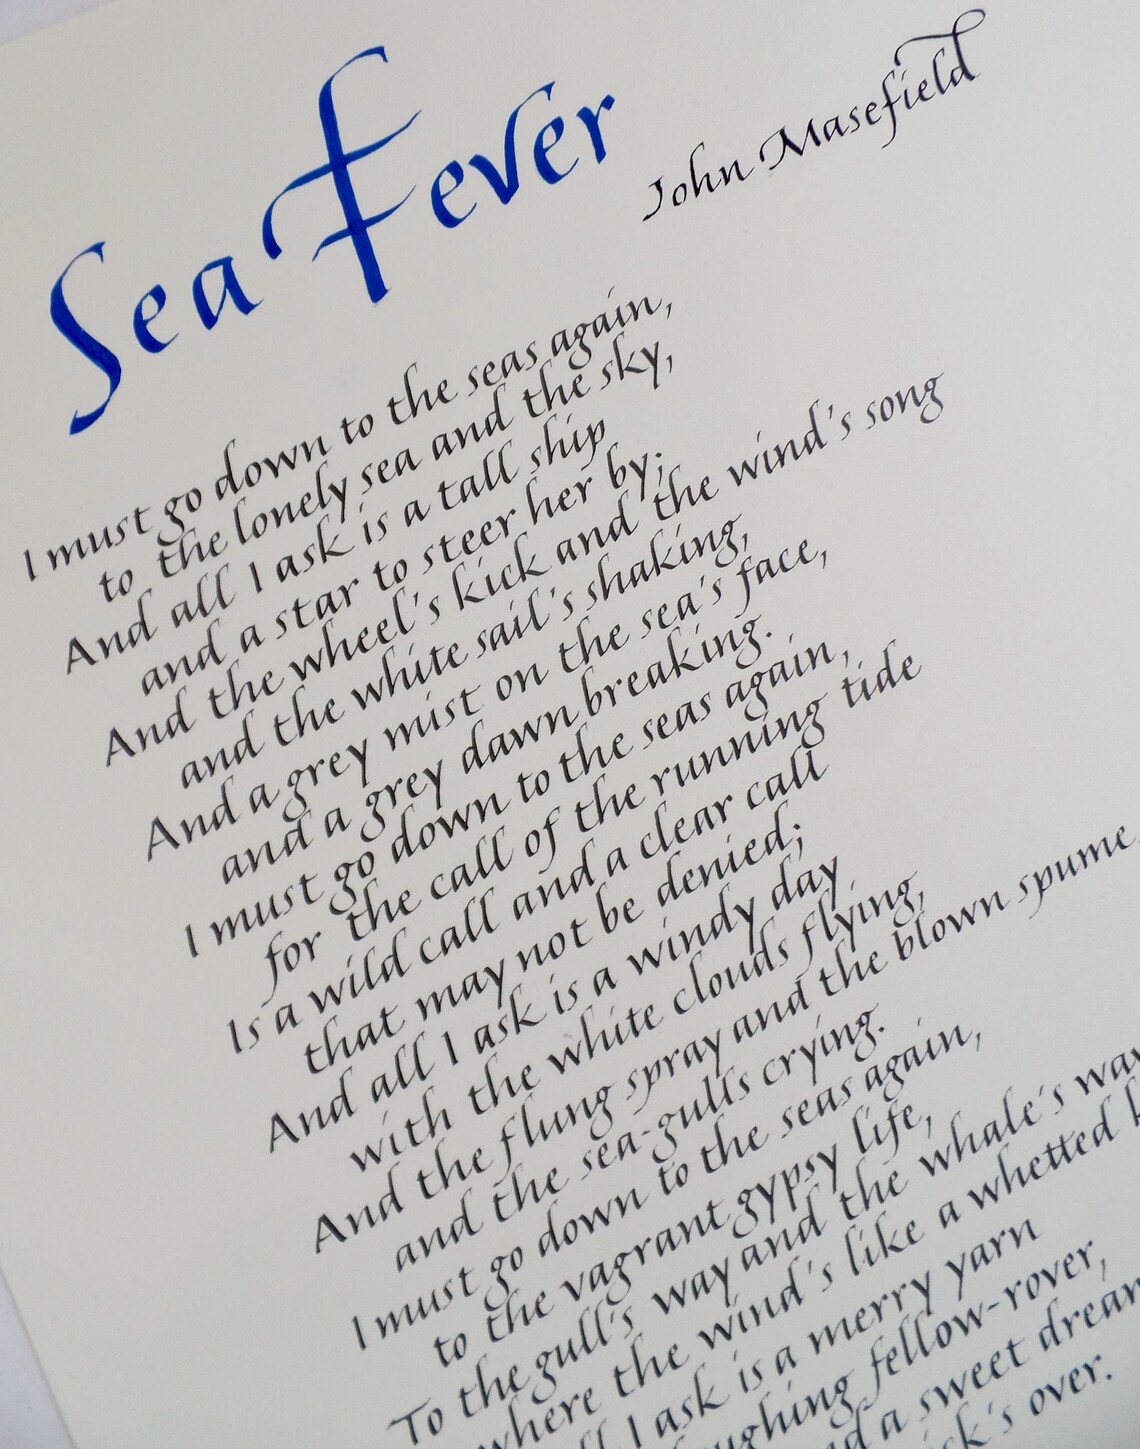 Sea Fever
John Masefield
I must go down to the seas again,
to the lonely sea and the sky,
And all I ask is a tall ship
and a star to steer her by;
And the wheel's kick and the wind's song
and the white sail's shaking,
And a grey mist on the sea's face,
and a grey dawn breaking.
I must go down to the seas again,
for the call of the running tide
Is a wild call and a clear call
that may not be denied;
And all I ask is a windy day
with the white clouds flying,
And the flung spray and the blown spume,
and the sea-gulls crying.
I must go down to the seas again,
to the vagrant gypsy life,
To the gull's way and the whale's way
where the wind's like a whetted
I ask is a merry yarn
fellow-rover,
a sweet dream
over.